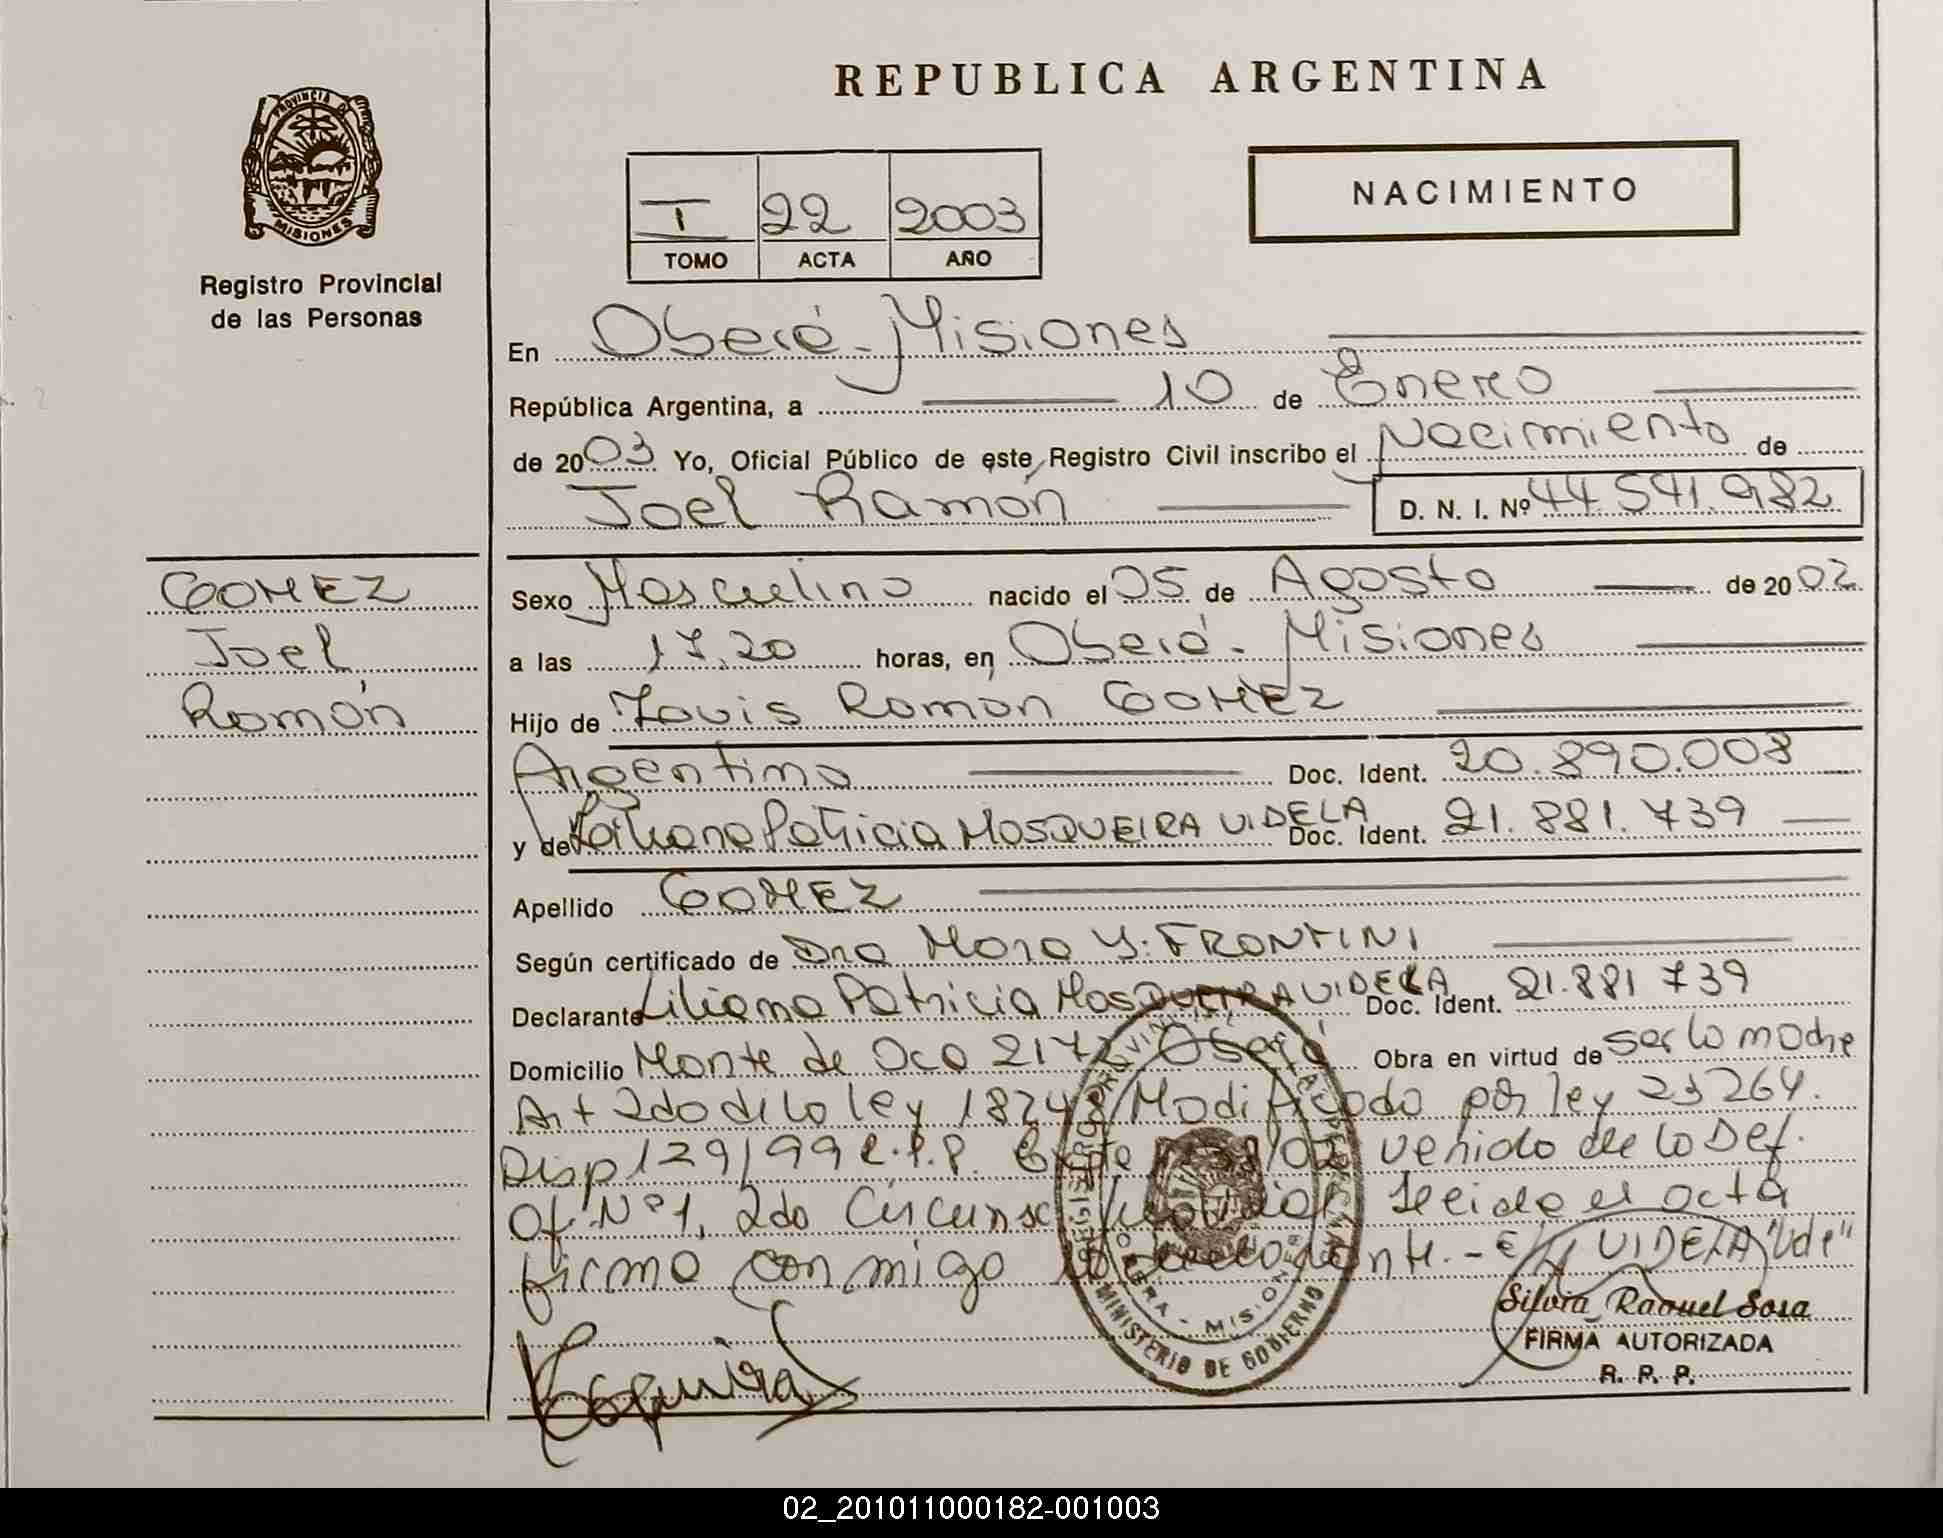 REPUBLICA ARGENTINA
PROVINCIA DE
MISIONES
Registro Provincial
de las Personas
I 22 2003
TOMO ACTA AÑO
NACIMIENTO
En Oberá - Misiones
República Argentina, a 10 de Enero
de 2003 Yo, Oficial Público de este Registro Civil inscribo el Nacimiento de
Joel Ramón D. N. I. Nº 44.541.982
GOMEZ
Joel
Ramón
Sexo Masculino nacido el 05 de Agosto de 2002
a las 17.20 horas, en Oberá - Misiones
Hijo de Louis Ramon GOMEZ
Argentino Doc. Ident. 20.890.008
y de Liliana Patricia MOSQUEIRA VIDELA Doc. Ident. 21.881.739
Apellido GOMEZ
Según certificado de Dra Mora Y. FRONTINI
Declarante Liliana Patricia MOSQUEIRA VIDELA Doc. Ident. 21.881 739
Domicilio Monte de Oca 217 Oberá Obra en virtud de ser la madre
Art 2do de la ley 18248 Modificado por ley 23264.
Disp 129/99 R.P.P. venido de la Def.
Of. Nº 1, 2da Circunsc Leida el acta
firma conmigo la declarante. - VIDELA "Vde"
MINISTERIO DE GOBIERNO
OBERA - MISIONES
Silvia Raquel Sosa
FIRMA AUTORIZADA
R. P. P.
02_201011000182-001003